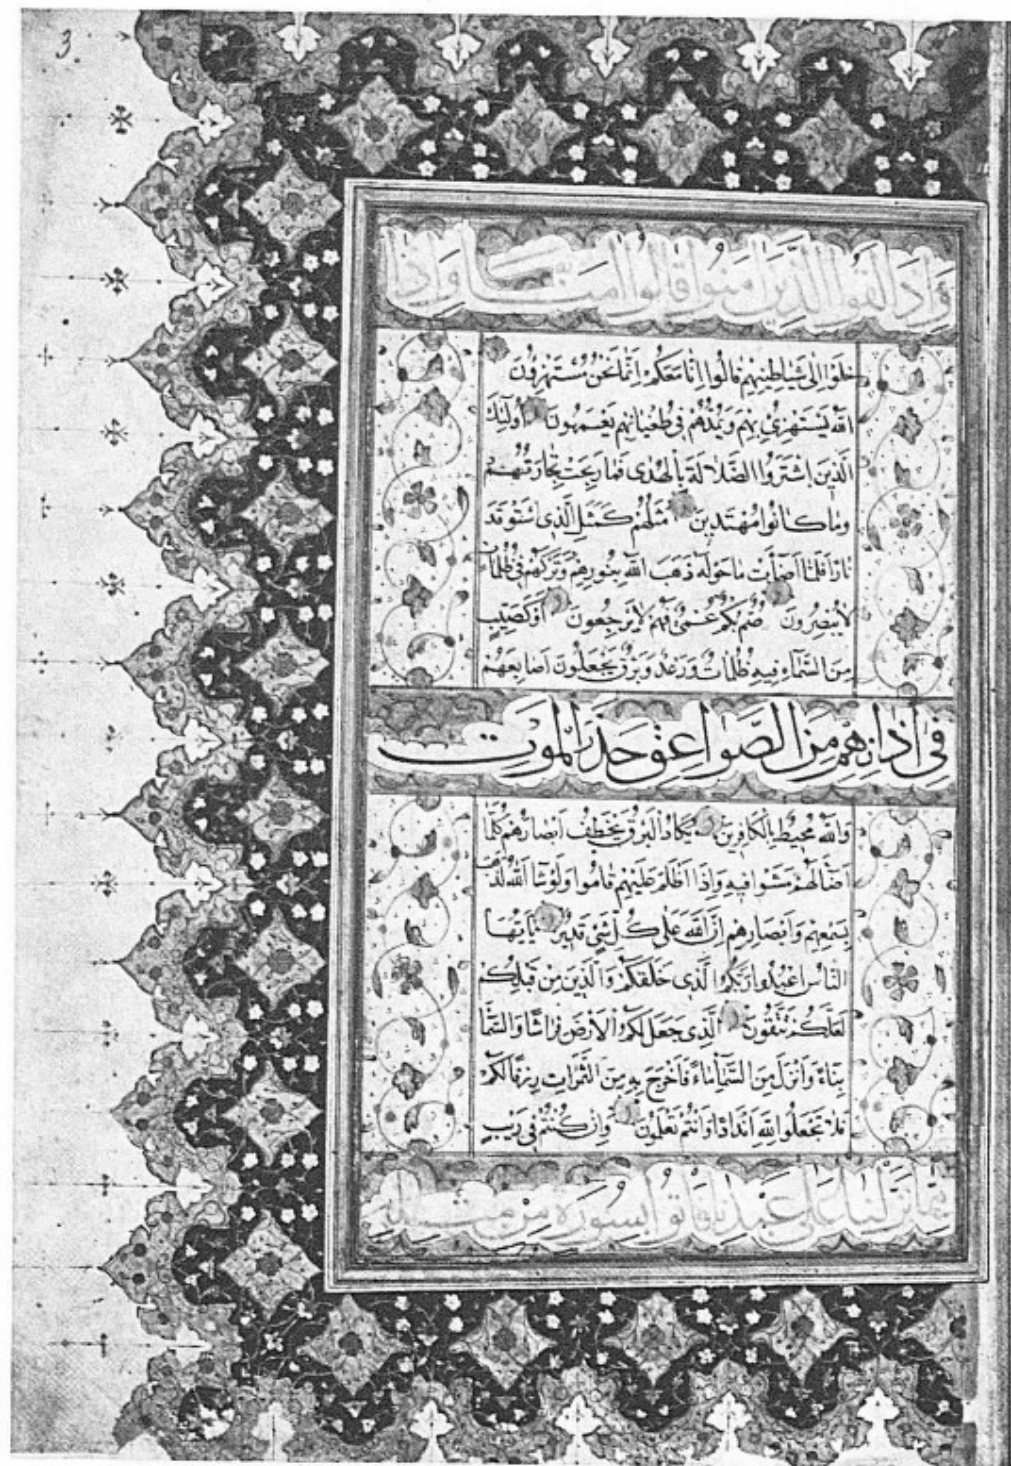 3
وَاِذَا لَقُوا الَّذِينَ اٰمَنُوا قَالُوا اٰمَنَّا وَاِذَا
خَلَوْا اِلٰى شَيَاطِينِهِمْ قَالُوا اِنَّا مَعَكُمْ اِنَّمَا نَحْنُ مُسْتَهْزِؤُنَ
اَللّٰهُ يَسْتَهْزِئُ بِهِمْ وَيَمُدُّهُمْ فِي طُغْيَانِهِمْ يَعْمَهُونَ اُولٰئِكَ
الَّذِينَ اشْتَرَوُا الضَّلَالَةَ بِالْهُدٰى فَمَا رَبِحَتْ تِجَارَتُهُمْ
وَمَا كَانُوا مُهْتَدِينَ مَثَلُهُمْ كَمَثَلِ الَّذِي اسْتَوْقَدَ
نَارًا فَلَمَّا اَضَاءَتْ مَا حَوْلَهُ ذَهَبَ اللّٰهُ بِنُورِهِمْ وَتَرَكَهُمْ فِي ظُلُمَاتٍ
لَا يُبْصِرُونَ صُمٌّ بُكْمٌ عُمْيٌ فَهُمْ لَا يَرْجِعُونَ اَوْ كَصَيِّبٍ
مِنَ السَّمَاءِ فِيهِ ظُلُمَاتٌ وَرَعْدٌ وَبَرْقٌ يَجْعَلُونَ اَصَابِعَهُمْ
فِي اٰذَانِهِمْ مِنَ الصَّوَاعِقِ حَذَرَ الْمَوْتِ
وَاللّٰهُ مُحِيطٌ بِالْكَافِرِينَ يَكَادُ الْبَرْقُ يَخْطَفُ اَبْصَارَهُمْ كُلَّمَا
اَضَاءَ لَهُمْ مَشَوْا فِيهِ وَاِذَا اَظْلَمَ عَلَيْهِمْ قَامُوا وَلَوْ شَاءَ اللّٰهُ لَذَهَبَ
بِسَمْعِهِمْ وَاَبْصَارِهِمْ اِنَّ اللّٰهَ عَلٰى كُلِّ شَيْءٍ قَدِيرٌ يَا اَيُّهَا
النَّاسُ اعْبُدُوا رَبَّكُمُ الَّذِي خَلَقَكُمْ وَالَّذِينَ مِنْ قَبْلِكُمْ
لَعَلَّكُمْ تَتَّقُونَ اَلَّذِي جَعَلَ لَكُمُ الْاَرْضَ فِرَاشًا وَالسَّمَاءَ
بِنَاءً وَاَنْزَلَ مِنَ السَّمَاءِ مَاءً فَاَخْرَجَ بِهِ مِنَ الثَّمَرَاتِ رِزْقًا لَكُمْ
فَلَا تَجْعَلُوا لِلّٰهِ اَنْدَادًا وَاَنْتُمْ تَعْلَمُونَ وَاِنْ كُنْتُمْ فِي رَيْبٍ
مِمَّا نَزَّلْنَا عَلٰى عَبْدِنَا فَاْتُوا بِسُورَةٍ مِنْ مِثْلِهِ